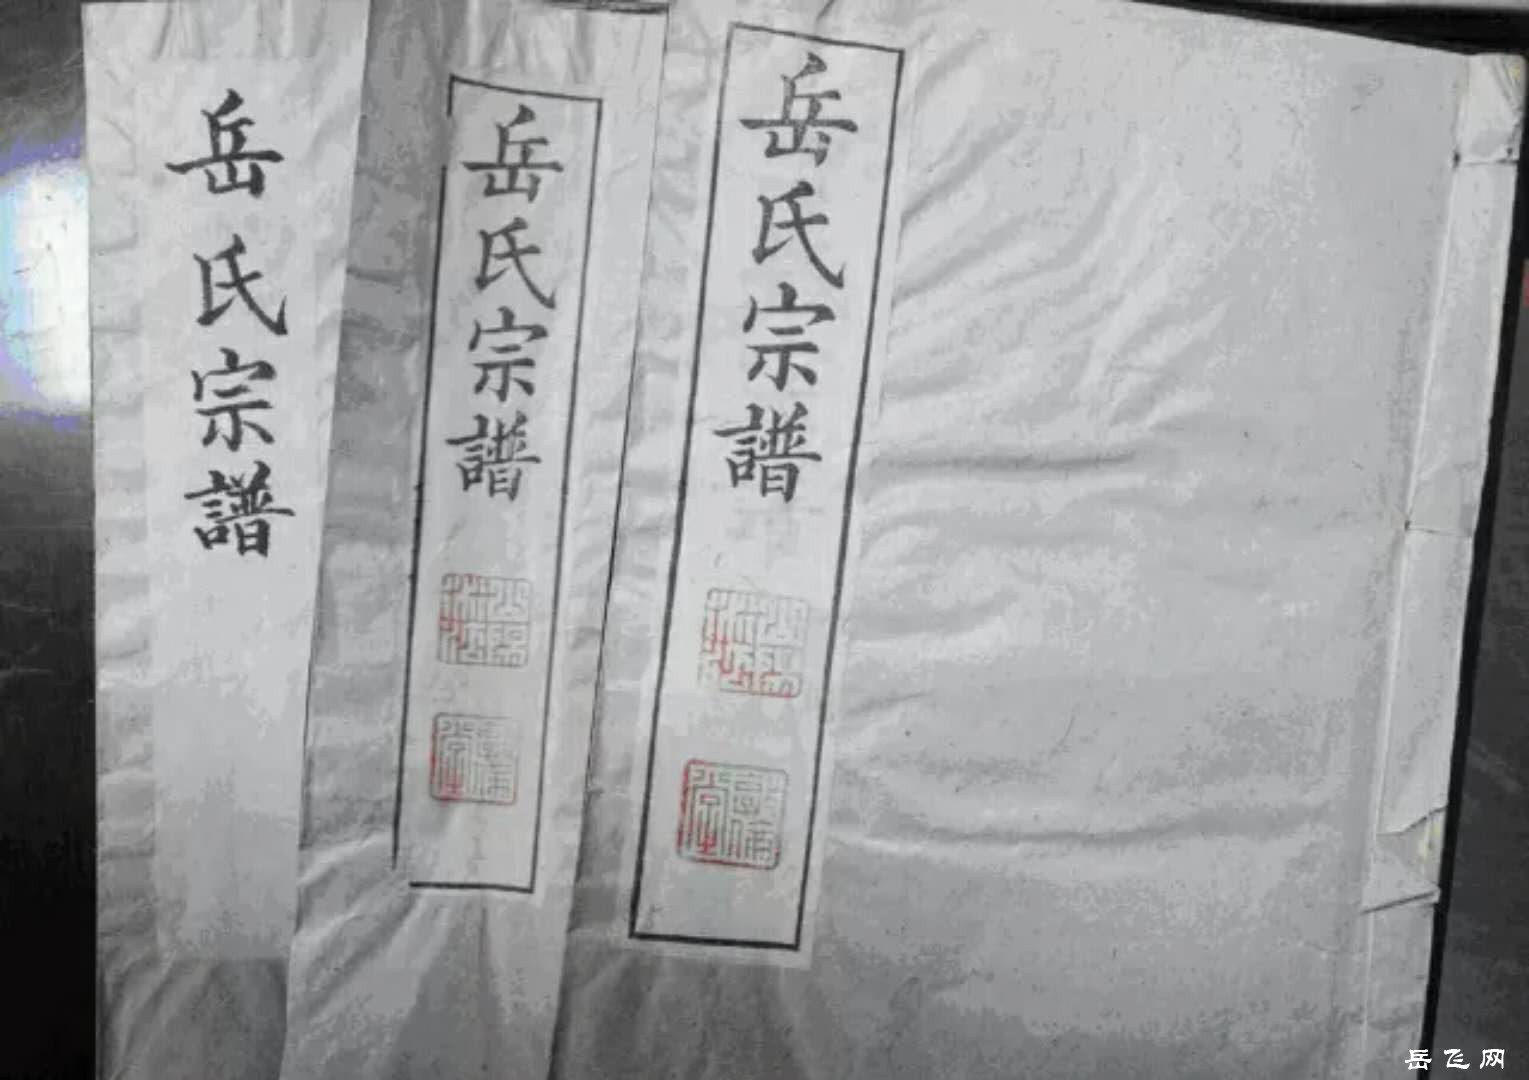 岳氏宗譜
岳氏宗譜
岳氏宗譜
岳飞网